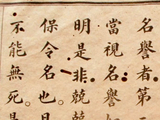 名譽者第二
當視名譽如
明是非兢兢
保令名也。
不能無死是